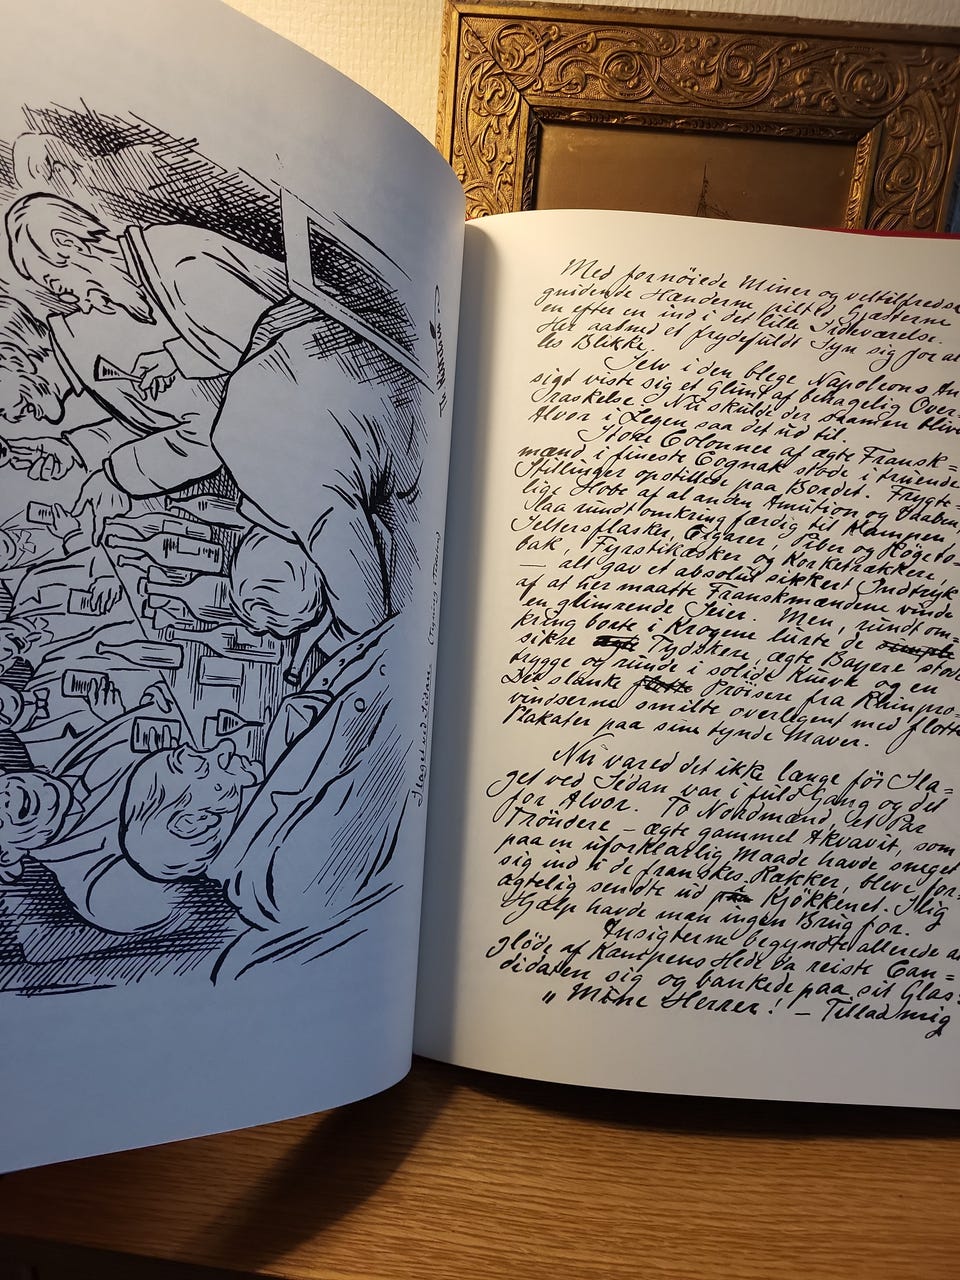 Th. Kittelsen
Slaget ved Sedan.
Med fornøiede Miner og veltilfredse
gnidende Hænderne pilted Gjæsterne
en efter en ind i det lille Sideværelse.
Her aabned et frydefuldt Syn sig for al
les Blikke.
Selv i den blege Napoleons An
sigt viste sig et Glimt af behagelig Over-
raskelse. Nu skulde der saamen blive
Alvor i Legen saa det ud til.
Colonner af ægte Fransk=
mænd i fineste Cognak stode i truende
Stillinger opstillede paa Bordet. Frygte=
lige Hobe af al anden Amution og Vaaben
laa rundt omkring færdig til Kampen,
Seltersflasker, Cigarer, Piber og Røgeto-
bak, Fyrstikæsker og Korketrækkere,
— alt gav et absolut sikkert Indtryk
af at her maatte Franskmændene vinde
en glimrende Seier. Men, rundt om=
kring borte i Krogene lurte de
sikre Tydskere, ægte Bayere store
trygge og runde i solide Knuk og en
Del slanke Prøisere fra Rhinpro-
vindserne smilte overlegent med flotte
Plakater paa sine tynde Maver.
Nu vared det ikke længe før Sla=
get ved Sedan var i fuld Gang og det
for Alvor. To Nordmænd, et Par
Trøndere – ægte gammel Akvavit, som
paa en uforklarlig Maade havde sneget
sig ind i de franskes Rækker, bleve for-
agtelig sendte ud Kjøkkenet. Slig
Hjælp havde man ingen Brug for.
Ansigterne begyndte allerede at
gløde af Kampens Hede da reiste Can=
didaten sig og bankede paa sit Glas:
„Mine Herrer! — Tillad mig